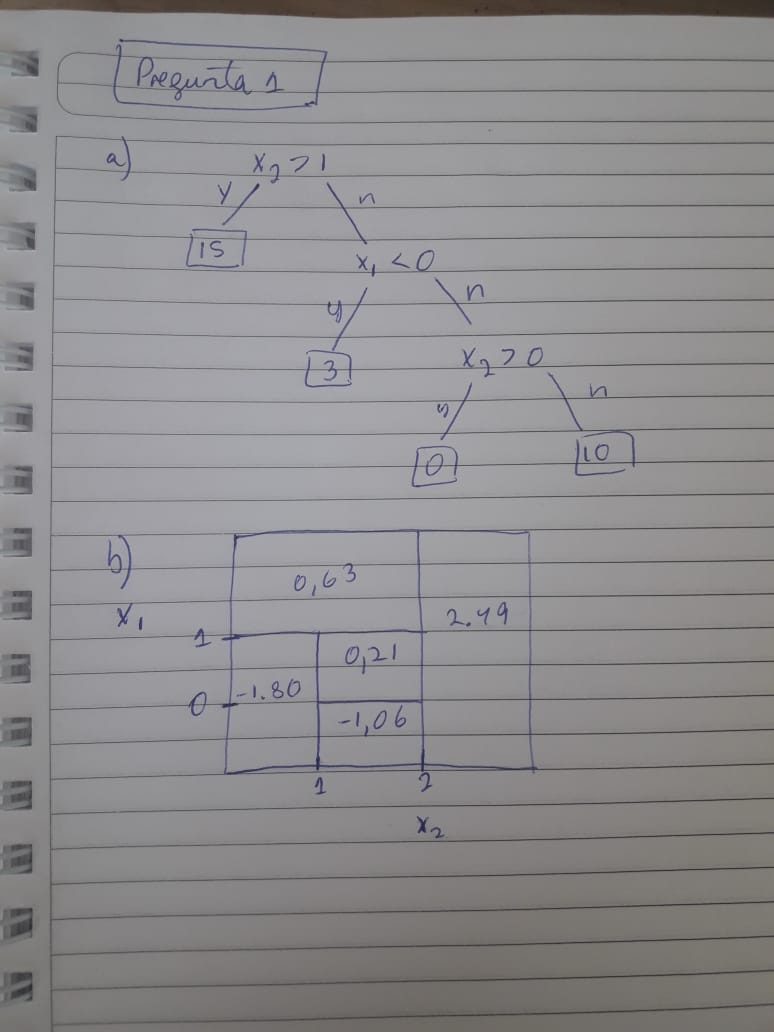 Pregunta 1
a) x₂ > 1
y n
15
x₁ < 0
y n
3
x₂ > 0
y n
0 10
b)
0,63
x₁
2.49
1
0,21
-1.80
0
-1,06
1 2
x₂